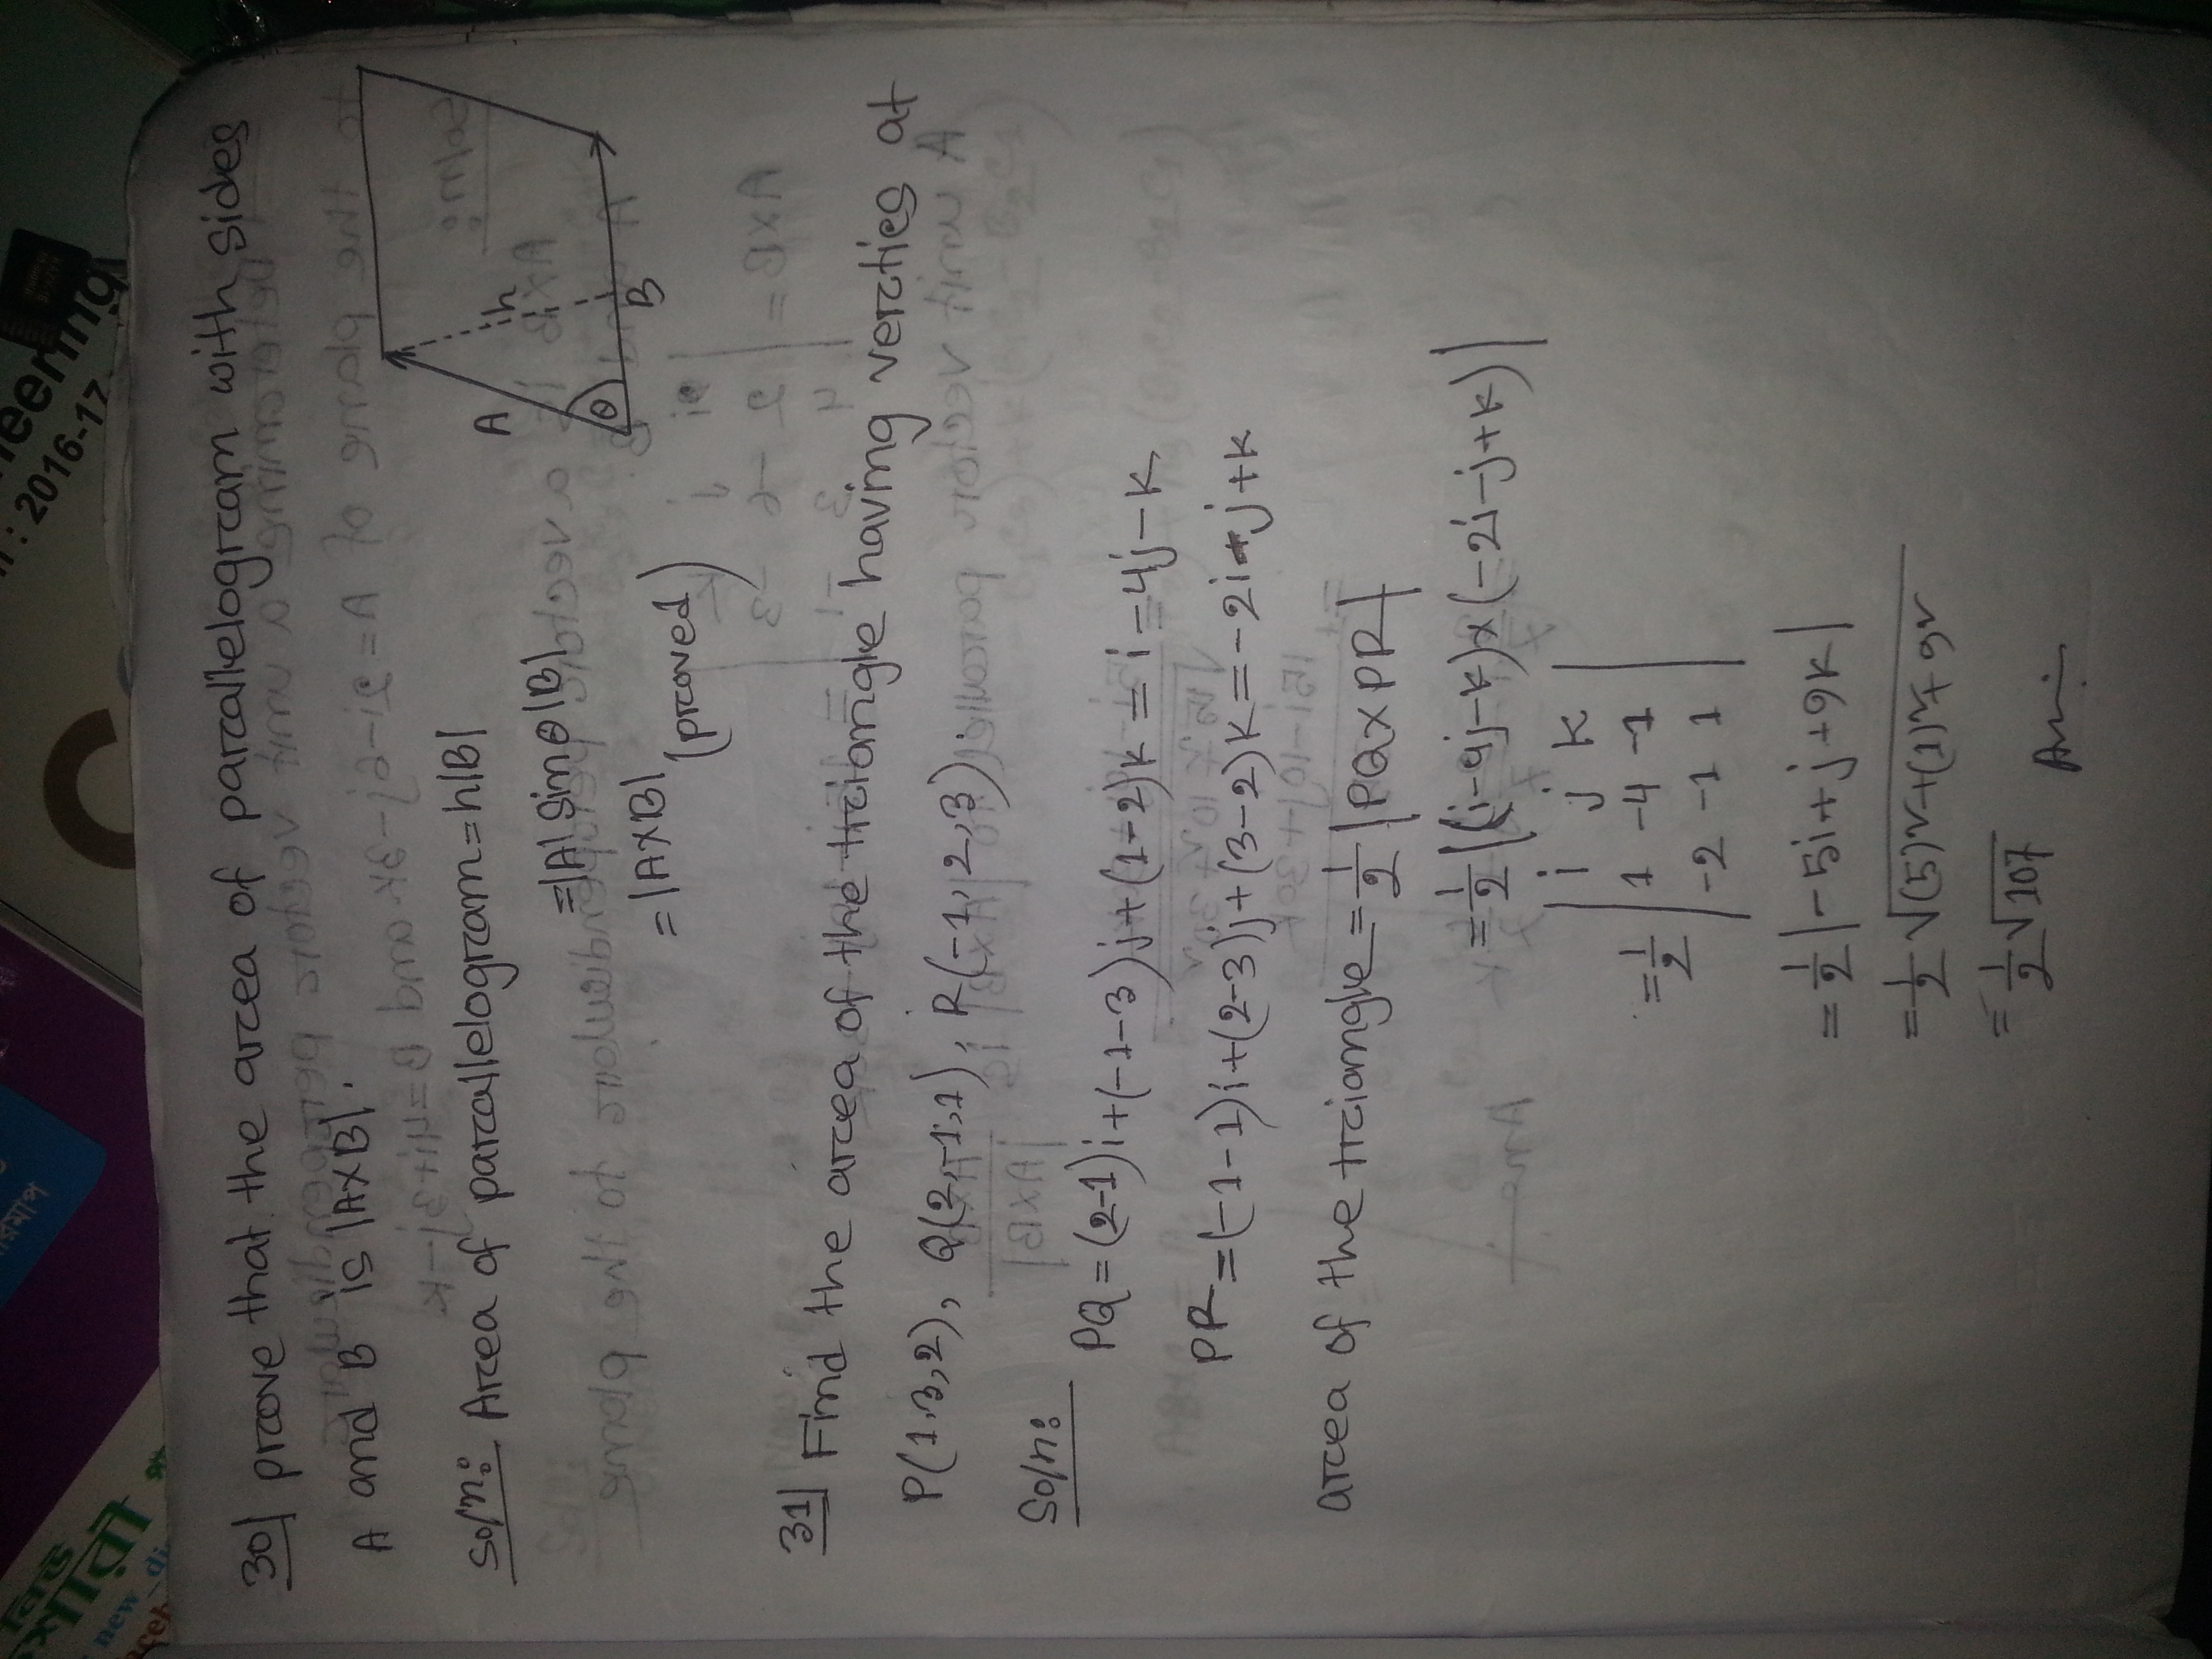 রিমাপ
new
neering
: 2016-17
30| prove that the area of parallelogram with sides
A and B is |A×B|.
Soln: Area of parallelogram = h|B|
= |A| sinθ |B|
= |A×B| (proved)
A
h
θ
B
31| Find the area of the triangle having verties at
P(1,3,2), Q(2,-1,1), R(-1,2,3).
Soln:
PQ = (2-1)i+(-1-3)j+(1-2)k = i-4j-k
PR = (-1-1)i+(2-3)j+(3-2)k = -2i-j+k
area of the triangle = 1/2 |PQ×PR|
= 1/2 |(i-4j-k)×(-2i-j+k)|
i j k
= 1/2 | 1 -4 -1 |
-2 -1 1
= 1/2 |-5i+j+9k|
= 1/2 √(5)²+(1)²+9²
= 1/2 √107 Ans: